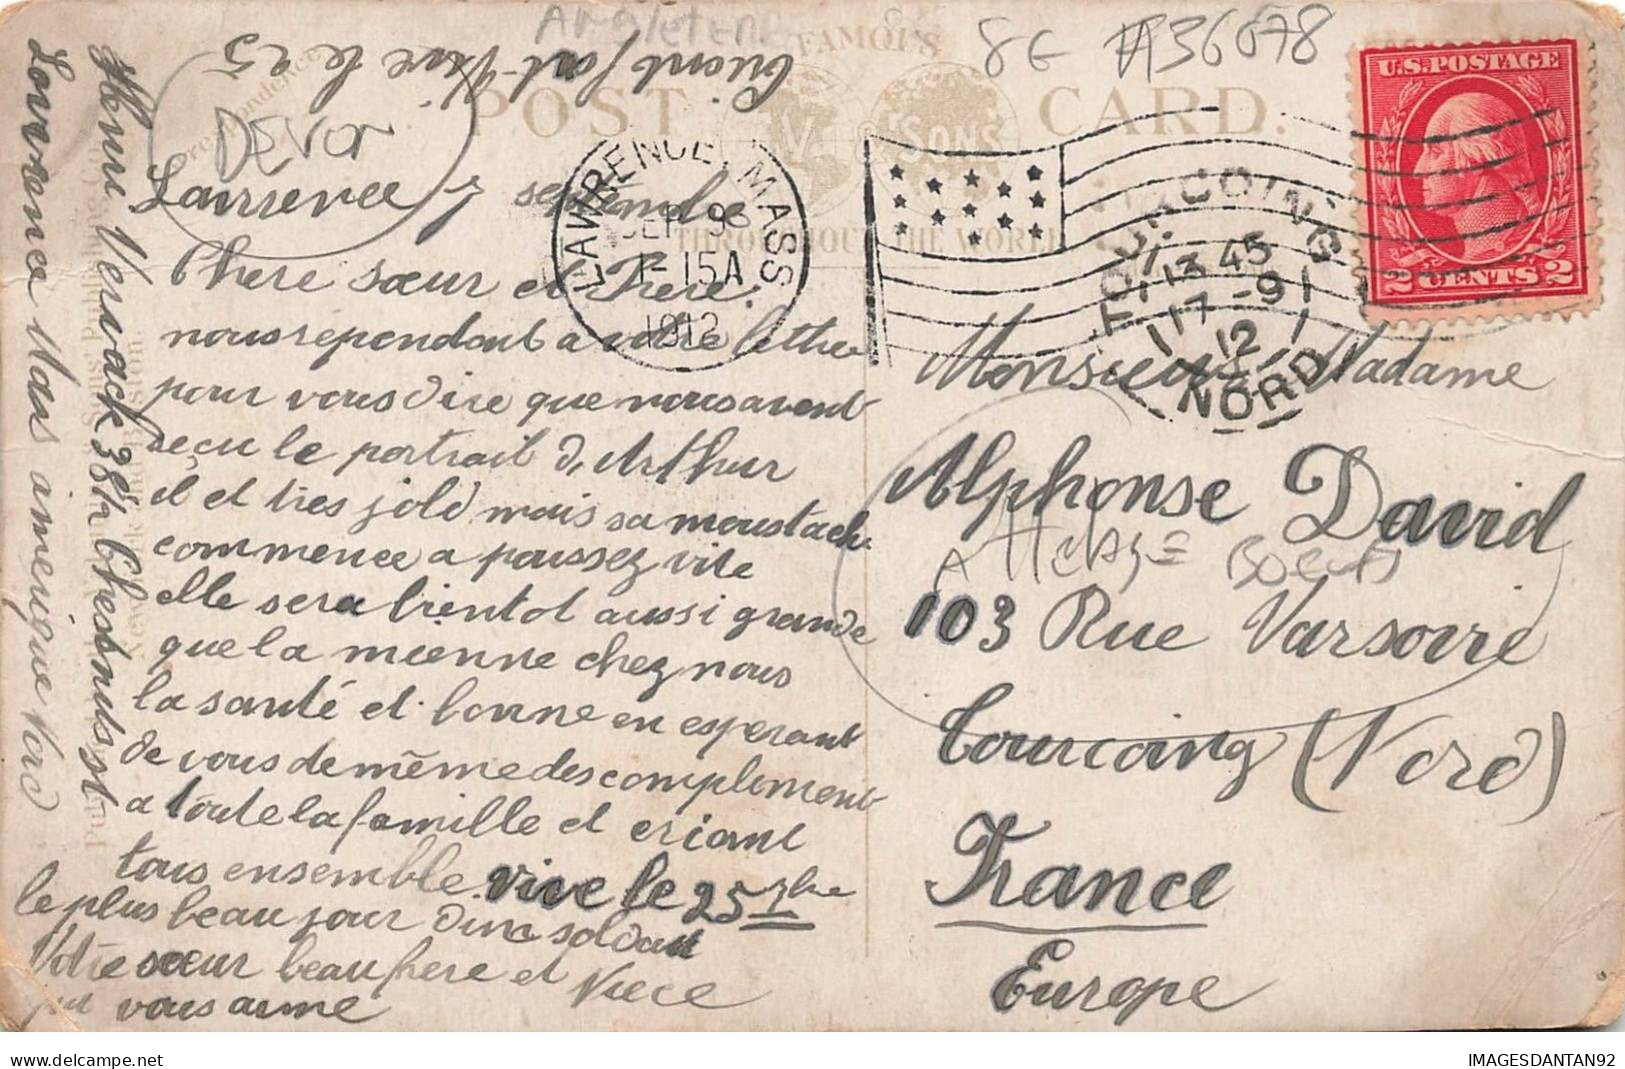 Angleterre
8E A36678
Criont fort Vive le 25
DEVOT
FAMOUS
POST CARD.
SONS
THROUGHOUT THE WORLD
LAWRENCE, MASS
SEP 9
1-15A
1912
U.S. POSTAGE
2 CENTS 2
TOURCOING
13 45
17 -9
12
NORD
Lawrence 7 septembre
Chere sœur et Frere
nous rependont a votre lettre
pour vous dire que nous avont
recu le portrait d, Arthur
il et tres jold mais sa moustache
commence a poussez vite
elle sera bientot aussi grande
que la mienne chez nous
la santé et bonne en esperant
de vous de même des compliment
a toute la famille et criant
tous ensemble vive le 25 7bre
le plus beau jour dun soldat
Votre sœur beaufrere et Niece
qui vous aime
Henri Vervack 38 Chestnuts st
Lawrence Mas amerique Nord
Monsieur, Madame
Alphonse David
103 Rue Varsovie
Tourcoing (Nord)
France
Europe
IMAGESDANTAN92